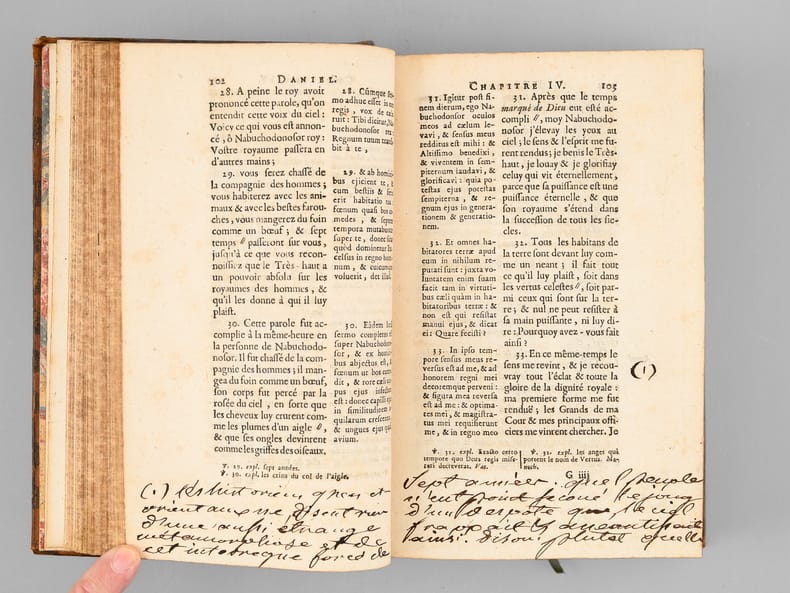 102 DANIEL.
28. A peine le roy avoit
prononcé cette parole, qu'on
entendit cette voix du ciel :
Voicy ce qui vous est annon-
cé, ô Nabuchodonosor roy :
Vostre royaume passera en
d'autres mains ;
29. vous serez chassé de
la compagnie des hommes ;
vous habiterez avec les ani-
maux & avec les bestes farou-
ches, vous mangerez du foin
comme un bœuf ; & sept
temps // passeront sur vous,
jusqu'à ce que vous recon-
noissiez que le Très-haut a
un pouvoir absolu sur les
royaumes des hommes, &
qu'il les donne à qui il luy
plaist.
30. Cette parole fut ac-
complie à la même-heure en
la personne de Nabuchodo-
nosor. Il fut chassé de la com-
pagnie des hommes ; il man-
gea du foin comme un bœuf,
son corps fut percé par la
rosée du ciel, en sorte que
les cheveux luy crurent com-
me les plumes d'un aigle //,
& que ses ongles devinrent
comme les griffes des oiseaux.
28. Cùmque
mo adhuc esset in
regis, vox de
ruit : Tibi dicitur, Na
buchodonosor
Regnum tuum
bit à te,
29. & ab homini
bus ejicient te, &
cum bestiis &
erit habitatio
fœnum quasi bos
medes, & septem
tempora mutabuntur
super te, donec
quòd dominetur
celsus in regno homi
num, & cuicumque
voluerit, det illud.
30. Eâdem
sermo completus
super Nabuchodo
nosor, & ex homini
bus abjectus est, &
fœnum ut bos
dit, & rore cæli
pus ejus infectum
est : donec capilli
in similitudinem
quilarum crescerent
& ungues ejus quasi
avium.
℣. 29. expl. sept années.
℣. 30. expl. les crins du col de l'aigle.
(1) Les historiens grecs et
orientaux ne disent rien
d'une aussi étrange
métamorphose et de
cet
CHAPITRE IV. 103
31. Igitur post fi-
nem dierum, ego Na-
buchodonosor oculos
meos ad cælum le-
vavi, & sensus meus
redditus est mihi : &
Altissimo benedixi,
& viventem in sem-
piternum laudavi, &
glorificavi : quia po-
testas ejus potestas
sempiterna, & re-
gnum ejus in genera-
tionem & generatio-
nem.
32. Et omnes ha-
bitatores terræ apud
eum in nihilum re-
putati sunt : juxta vo-
luntatem enim suam
facit tam in virtuti-
bus cæli quàm in ha-
bitatoribus terræ : &
non est qui resistat
manui ejus, & dicat
ei : Quare fecisti ?
33. In ipso tem-
pore sensus meus re-
versus est ad me, & ad
honorem regni mei
decoremque perveni :
& figura mea reversa
est ad me : & optima-
tes mei, & magistra-
tus mei requisierunt
me, & in regno meo
31. Après que le temps
marqué de Dieu eut esté ac-
compli //, moy Nabuchodo-
nosor j'élevay les yeux au
ciel ; le sens & l'esprit me fu-
rent rendus ; je benis le Très-
haut, je louay & je glorifiay
celuy qui vit éternellement,
parce que sa puissance est une
puissance éternelle, & que
son royaume s'étend dans
la succession de tous les sie-
cles.
32. Tous les habitans de
la terre sont devant luy com-
me un neant ; il fait tout
ce qu'il luy plaist, soit dans
les vertus celestes //, soit par-
mi ceux qui sont sur la ter-
re ; & nul ne peut résister à
sa main puissante, ni luy di-
re : Pourquoy avez-vous fait
ainsi ?
33. En ce même-temps le
sens me revint, & je recou-
vray tout l'éclat & toute la
gloire de la dignité royale :
ma premiere forme me fut
renduë ; les Grands de ma
Cour & mes principaux offi-
ciers me vinrent chercher. Je
(1)
℣. 31. expl. Exacto certo
tempore quo Deus regis mise-
reri decreverat. Vat.
℣. 32. expl. les anges qui
portent le nom de Vertus. Me-
noch.
G iiij
Sept années. que le peuple
n'eut point secoué le joug
d'un despote que le ciel
ainsi. disons plutôt qu'elle